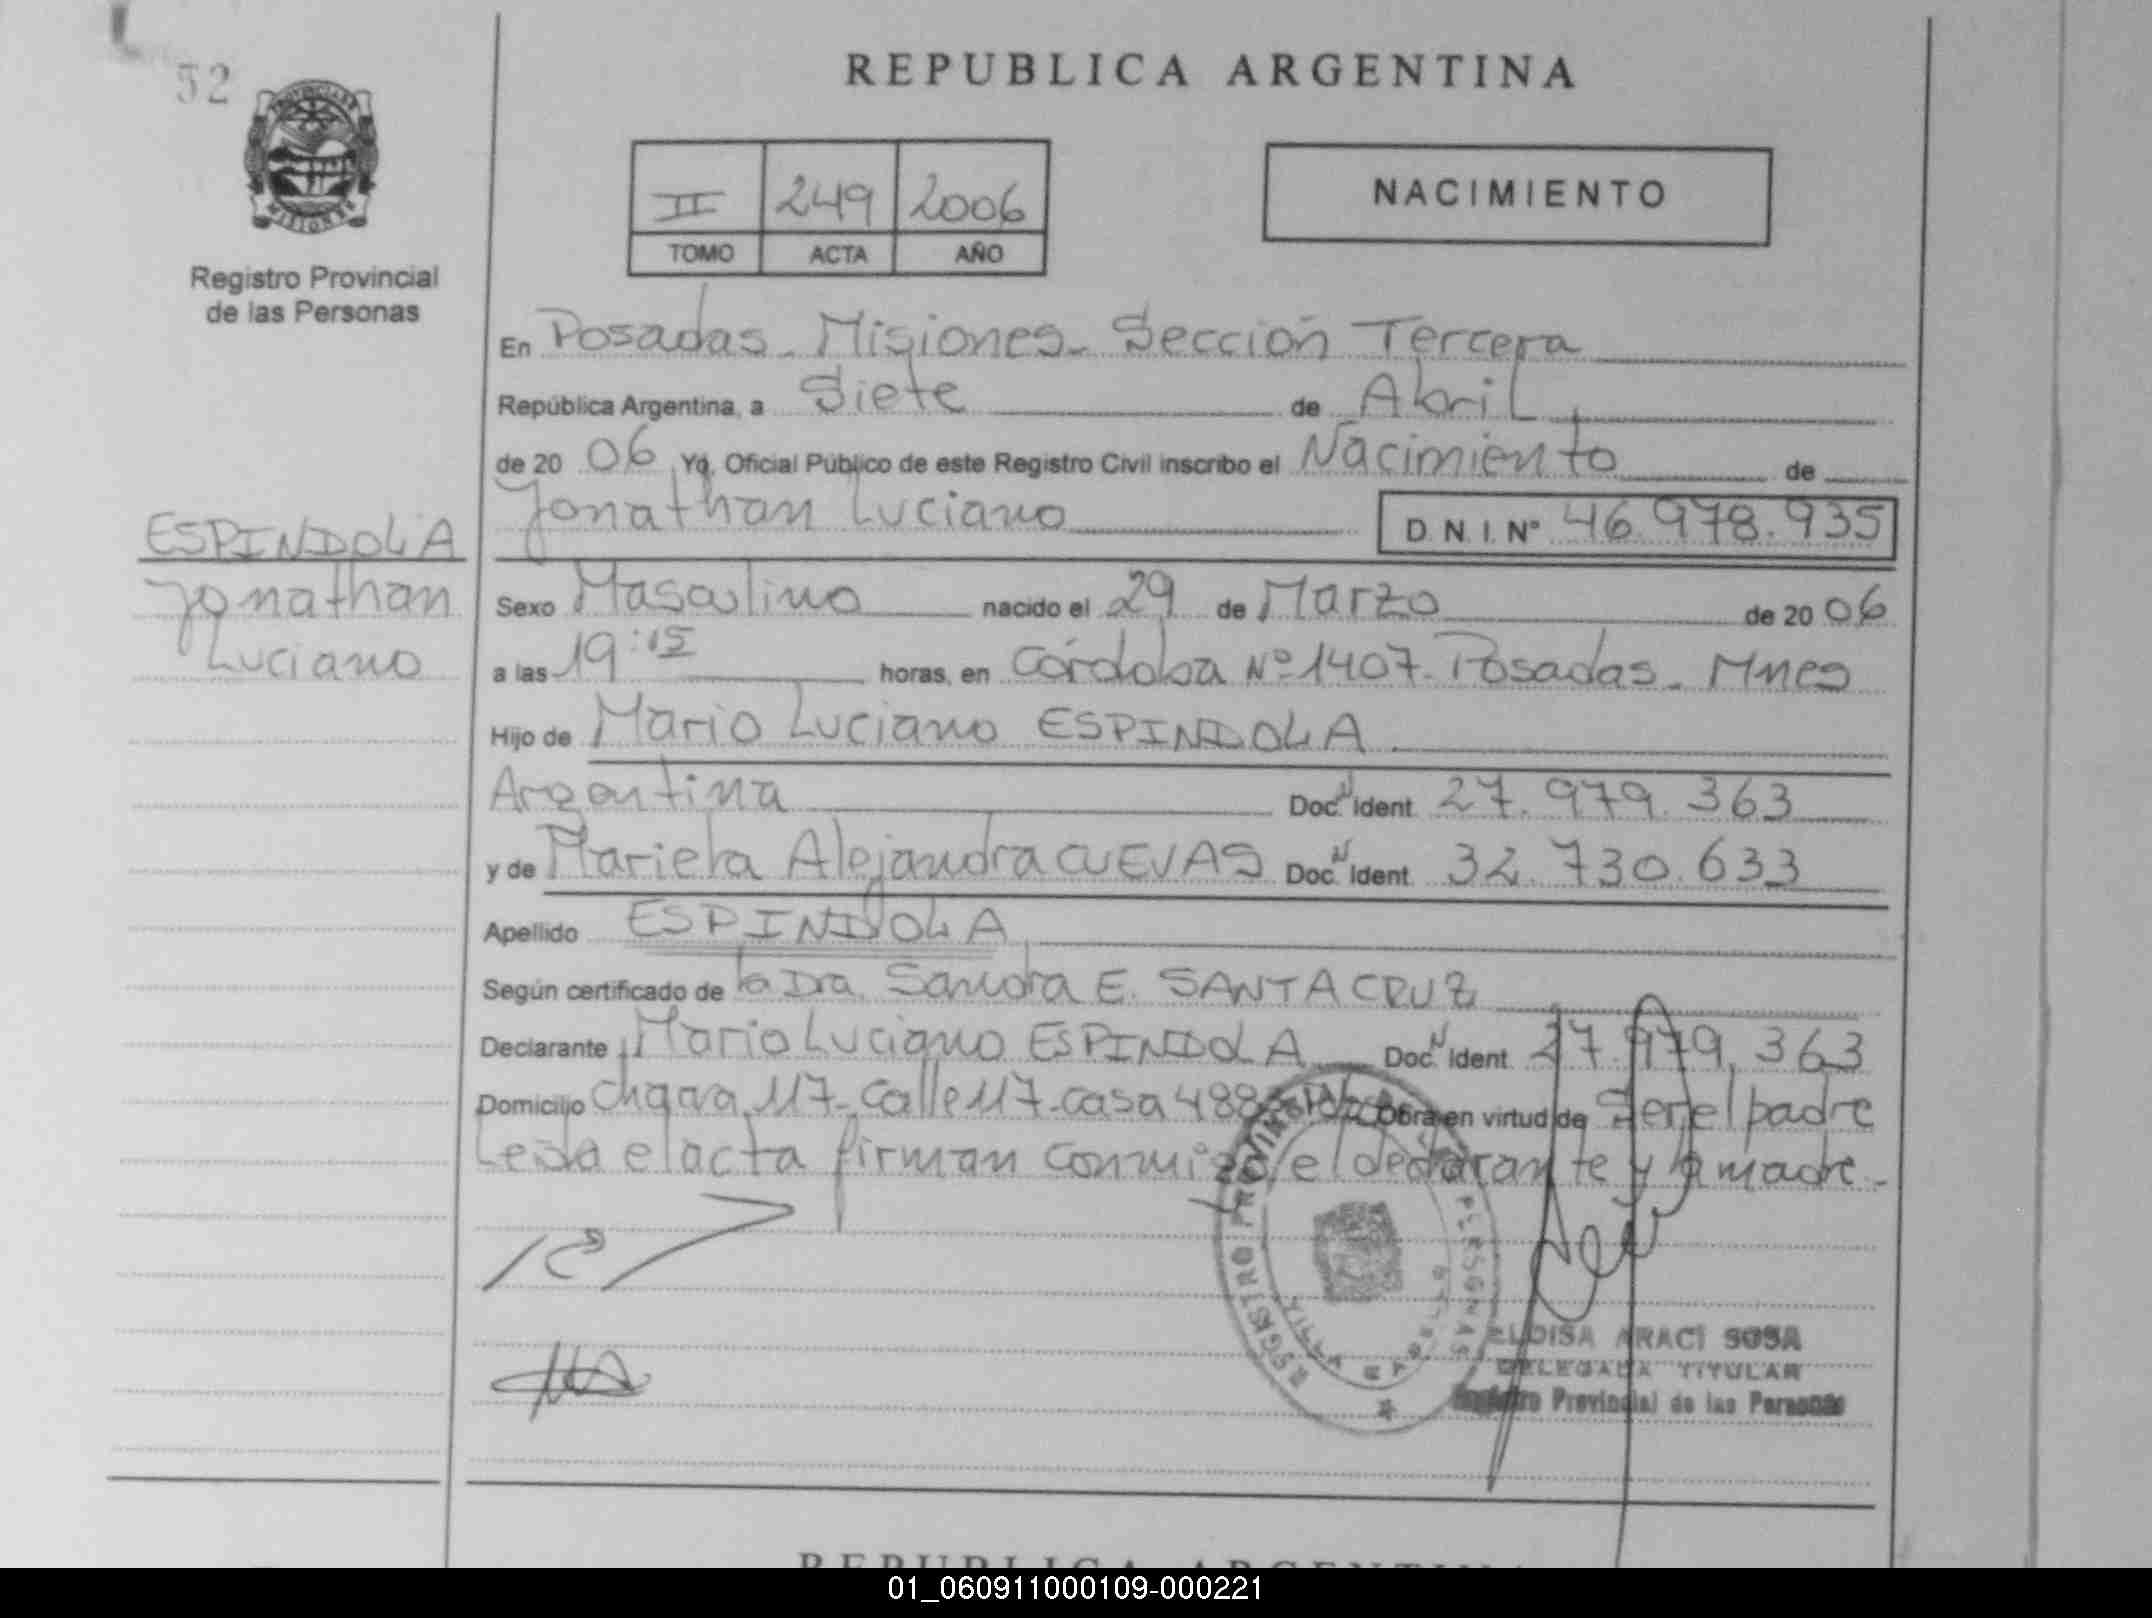 52
REPUBLICA ARGENTINA
PROVINCIA DE
MISIONES
Registro Provincial
de las Personas
II 249 2006
TOMO ACTA AÑO
NACIMIENTO
En Posadas - Misiones - Sección Tercera
República Argentina, a Siete de Abril
de 20 06 Yo, Oficial Público de este Registro Civil inscribo el Nacimiento de
Jonathan Luciano D.N.I. Nº 46.978.935
ESPINDOLA
Jonathan
Luciano
Sexo Masculino nacido el 29 de Marzo de 20 06
a las 19:15 horas, en Córdoba Nº 1407- Posadas - Mnes
Hijo de Mario Luciano ESPINDOLA
Argentina Doc. N Ident. 27.979.363
y de Mariela Alejandra CUEVAS Doc. N Ident. 32.730.633
Apellido ESPINDOLA
Según certificado de la Dra. Sandra E. SANTA CRUZ
Declarante Mario Luciano ESPINDOLA Doc. N Ident. 27.979.363
Domicilio Chacra 117- Calle 117- casa Obra en virtud de Ser el padre
Leida el acta firman conmigo el declarante y la madre -
REGISTRO PROVINCIAL
VILLA
ELOISA ARACI SOSA
DELEGADA TITULAR
Registro Provincial de las Personas
REPUBLICA ARGENTINA
01_060911000109-000221